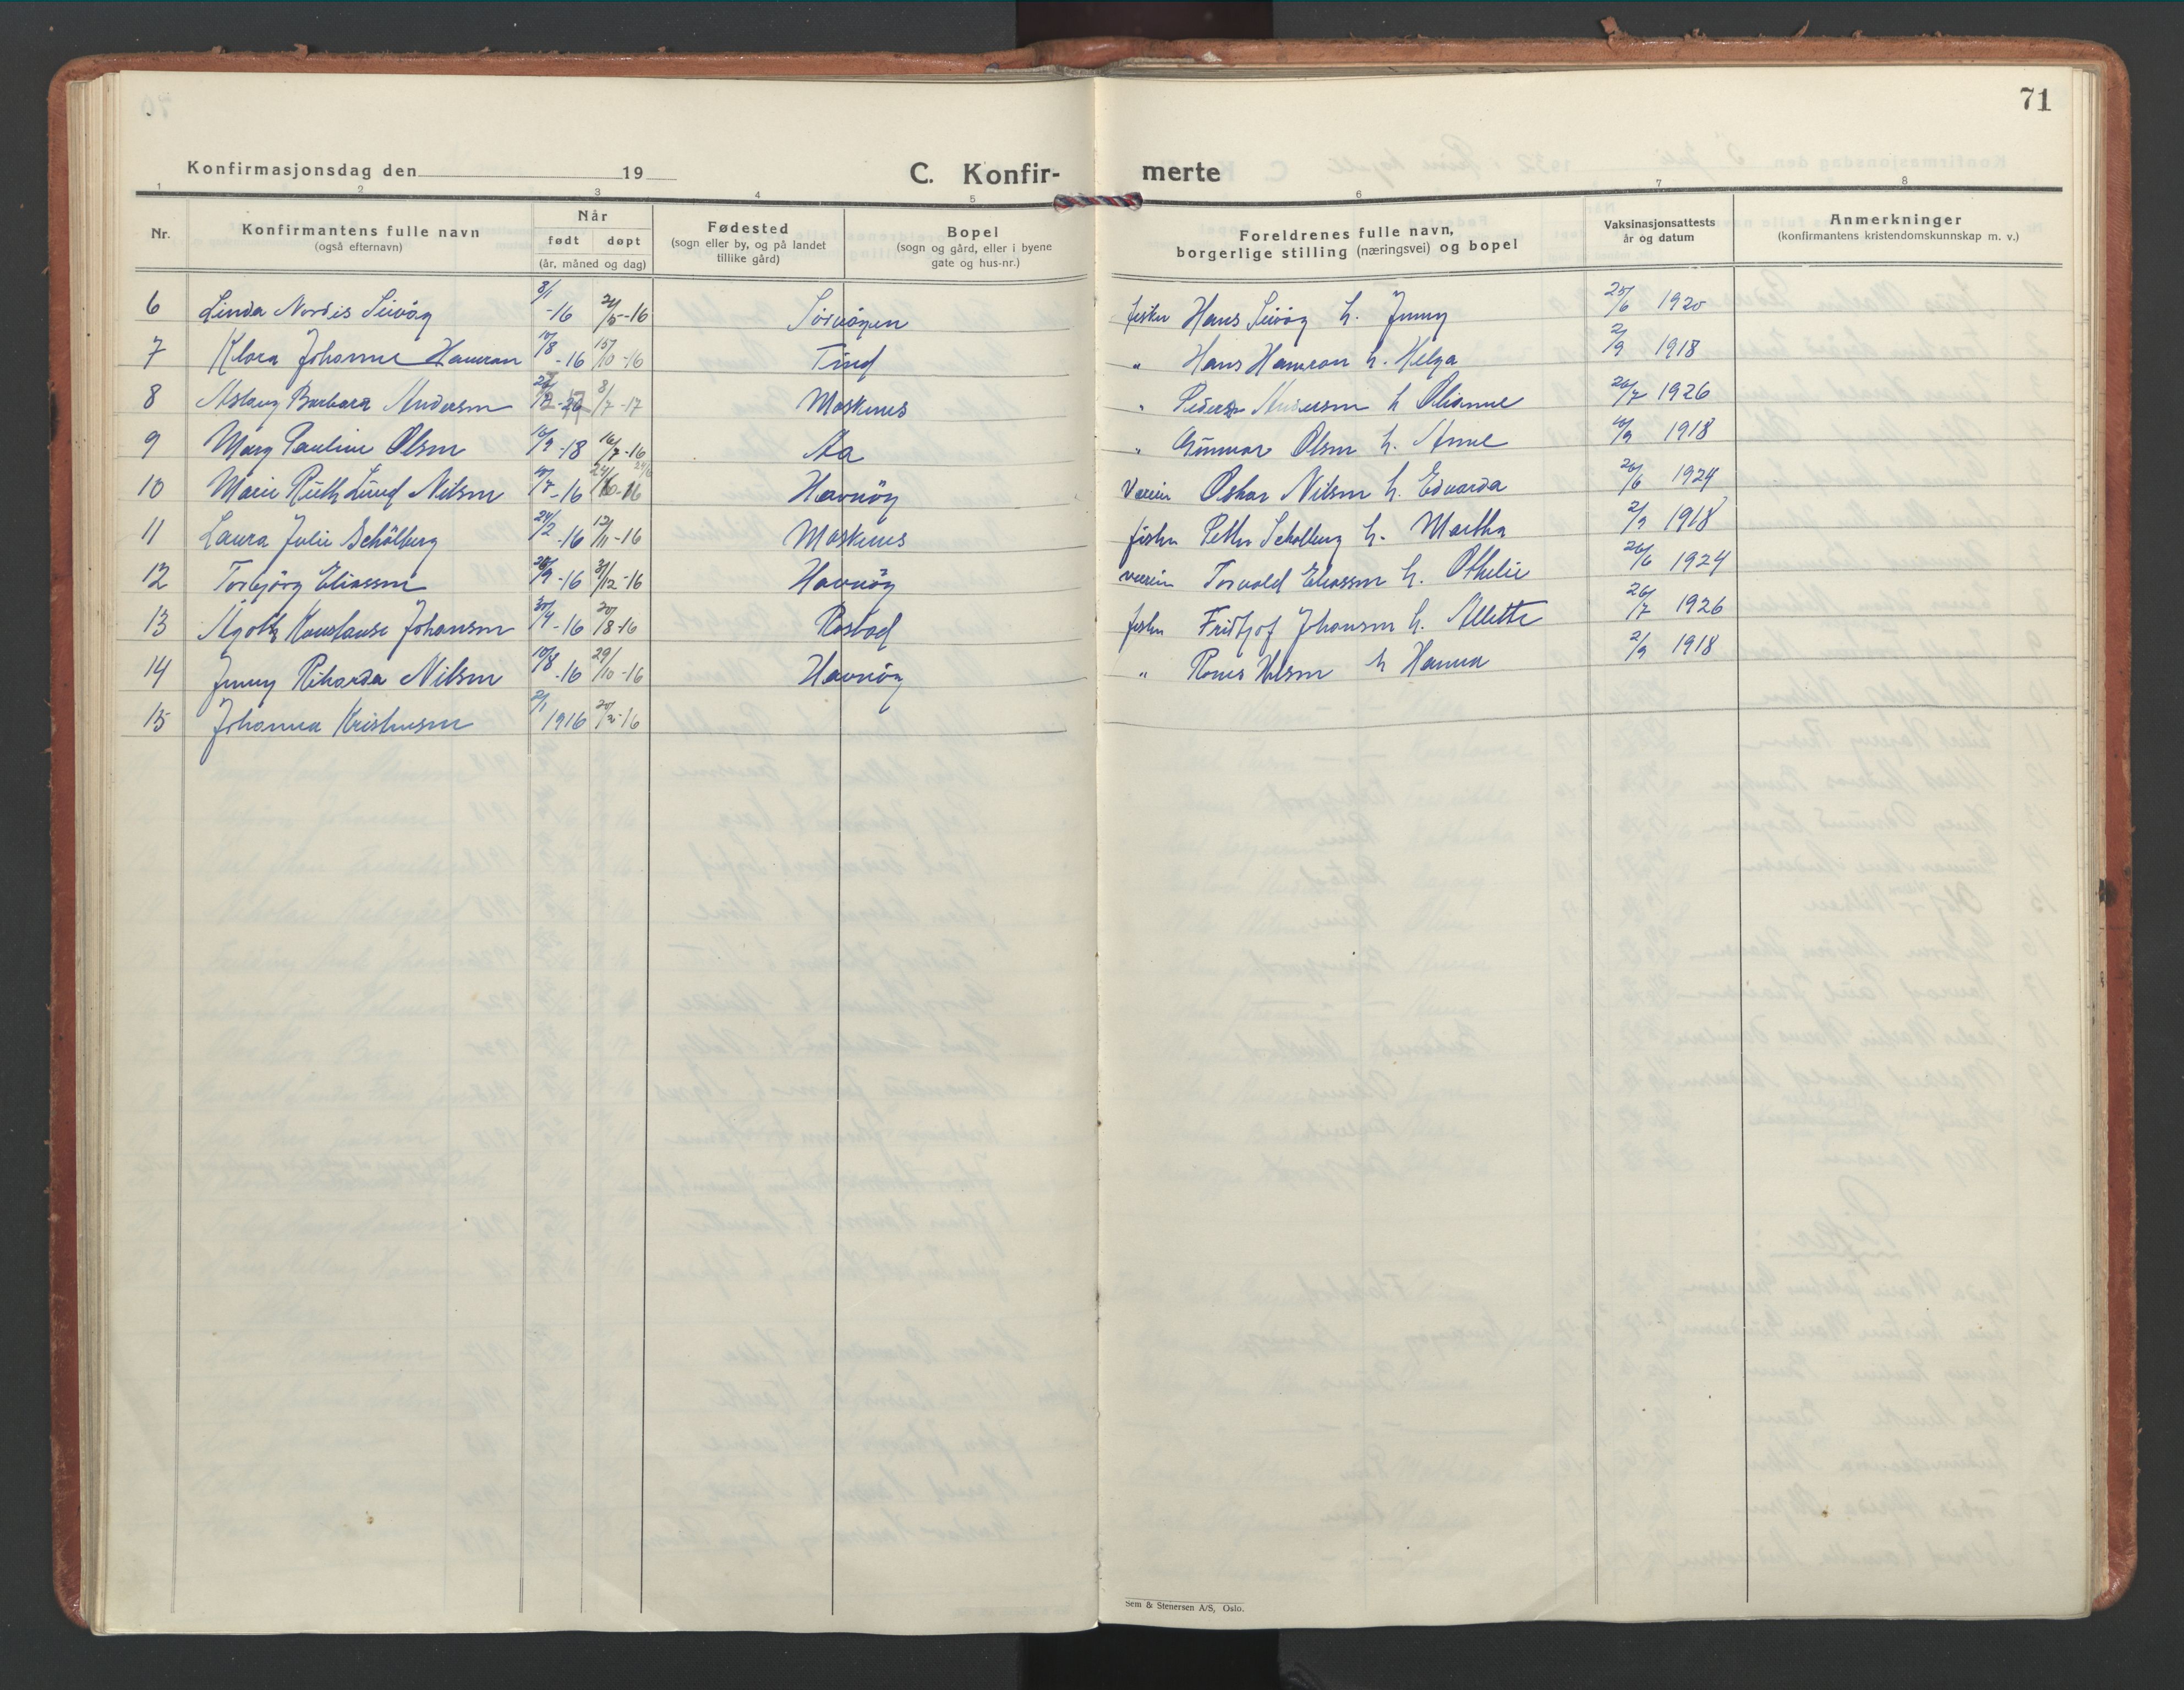 71
Konfirmasjonsdag den 19
C. Konfir- merte
1 2 3 4 5 6 7 8
Nr. Konfirmantens fulle navn (også efternavn) Når født døpt (år, måned og dag) Fødested (sogn eller by, og på landet tillike gård) Bopel (sogn og gård, eller i byene gate og hus-nr.) Foreldrenes fulle navn, borgerlige stilling (næringsvei) og bopel Vaksinasjonsattests år og datum Anmerkninger (konfirmantens kristendomskunnskap m. v.)
6 Linda Nordis 8/1 -16 21/5-16 Sørvågen fisker Hans h. Jenny 25/6 1920
7 Klara Johanne Hamran 10/8 -16 15/10 -16 Tind " Hans Hamran h. Helga 2/9 1918
8 Aslaug Barbara Andersen 8/7 -17 Moskenes " Peder Andersen h Olianne 26/7 1926
9 Mary Pauline Olsen -18 16/7 -16 Aa " Gunnar Olsen h. Anne 1918
10 Marie Ruth Lund Nilsen -16 Havnøy Oskar Nilsen h. Edvarda 26/6 1924
11 Laura Julie Schölberg 24/2 -16 12/11 -16 Moskenes fisker Petter Schølberg h. Martha 2/9 1918
12 Torbjørg Eliassen -16 31/12 -16 Havnøy Torvald Eliassen h. Othelie 26/6 1924
13 Agoth Konstanse Johansen 30/4 -16 20/8 -16 Rostad fisker Fridtjof Johansen h. Allette 26/7 1926
14 Jenny Rikarda Nilsen 10/8 -16 29/10 -16 Havnøy " Nilsen h Hanna 2/9 1918
15 Johanna Kristensen 2/1 1916 -16
Sem & Stenersen A/S, Oslo.